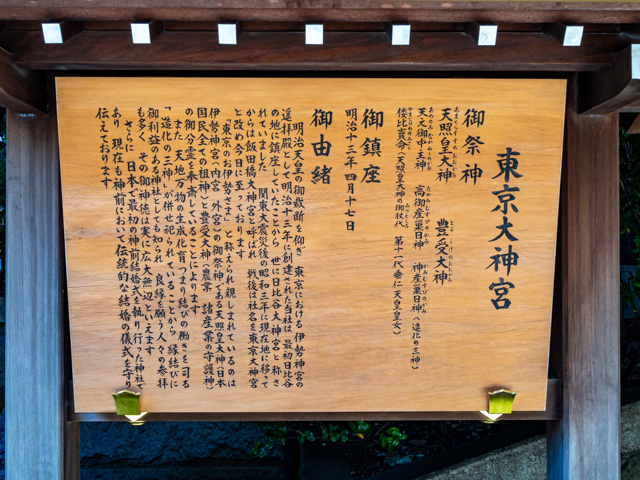 東京大神宮
御祭神
天照皇大神　豊受大神
天之御中主神　高御産巣日神　神産巣日神（造化の三神）
倭比賣命（天照皇大神の御杖代　第十一代垂仁天皇皇女）
御鎮座
明治十三年四月十七日
御由緒
明治天皇の御裁断を仰ぎ　東京における伊勢神宮の
遥拝殿として明治十三年に創建された当社は　最初日比谷
の地に鎮座していたことから　世に日比谷大神宮と称さ
れていました　関東大震災後の昭和三年に現在地に移って
からは飯田橋大神宮と呼ばれ　戦後は社名を東京大神宮
と改め今日に至っております
「東京のお伊勢さま」と称えられ親しまれているのは
伊勢神宮（内宮　外宮）の御祭神である天照皇大神（日本
国民全ての祖神）と豊受大神（農業　諸産業の守護神）
の御分霊を奉斎していることによります
また　天地万物の生成化育（つまり結びの働き）を司る
「造化の三神」が併せ祀られていることから　縁結びに
御利益のある神社としても知られ　良縁を願う人々の参拝
も多く　その御神徳は実に広大無辺といえます
さらに　日本で最初の神前結婚式を執り行った神社で
あり　現在も神前において伝統的な結婚の儀式を守り
伝えております